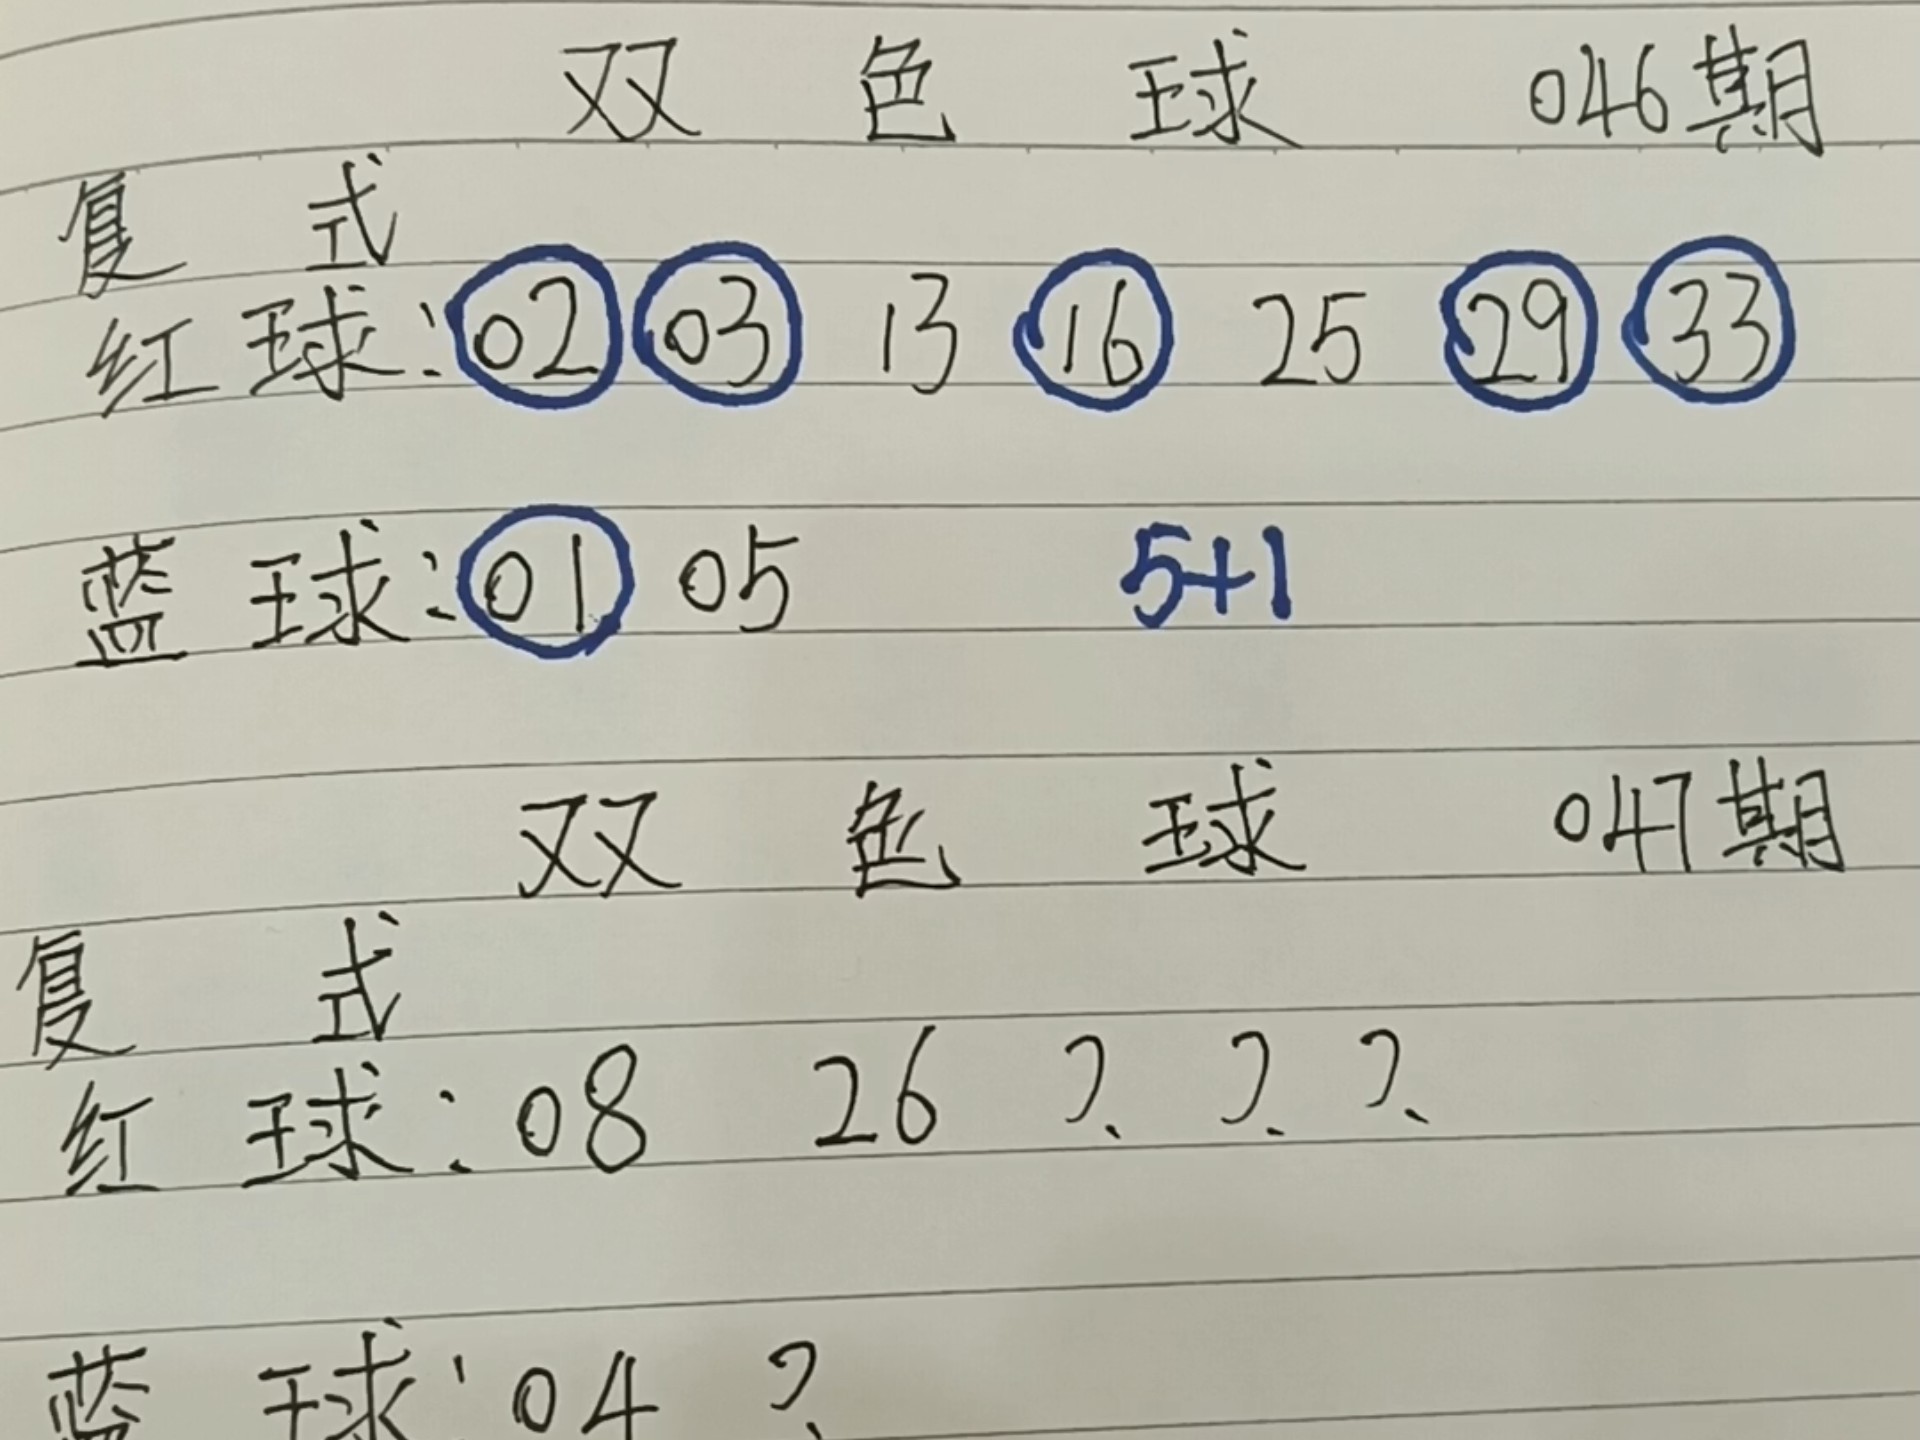 双 色 球 046期
复 式
红球:02 03 13 16 25 29 33
蓝球:01 05 5+1
双 色 球 047期
复 式
红球:08 26 ? ? ?
蓝球:04 ?